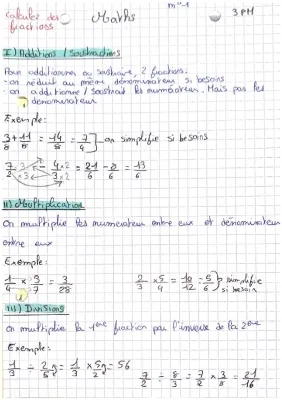 Calculez des fractions
Maths
3PM
I) Additions / Soustractions
Pour additionner ou soustraire, 2 fractions:
- on réduit au même dénominateur si besoins
- on additionne / soustrait les numérateur. Mais pas les
dénominateur
Exemple:
3/8 + 11/8 = 14/8 = 7/4 } on simplifie si besoins
= 21/6 - 8/6 = 13/6
II) Multiplication
On multiplie les numérateur entre eux et dénominateur
entre eux
Exemple:
1/4 × 3/7 = 3/28
2/3 × 5/4 = 10/12 = 5/6 } simplifie
si besoin
III) Divisions
on multiplie la 1ère fraction par l'inverse de la 2ème
Exemple:
7/2 ÷ 8/3 = 7/2 × 3/8 = 21/16